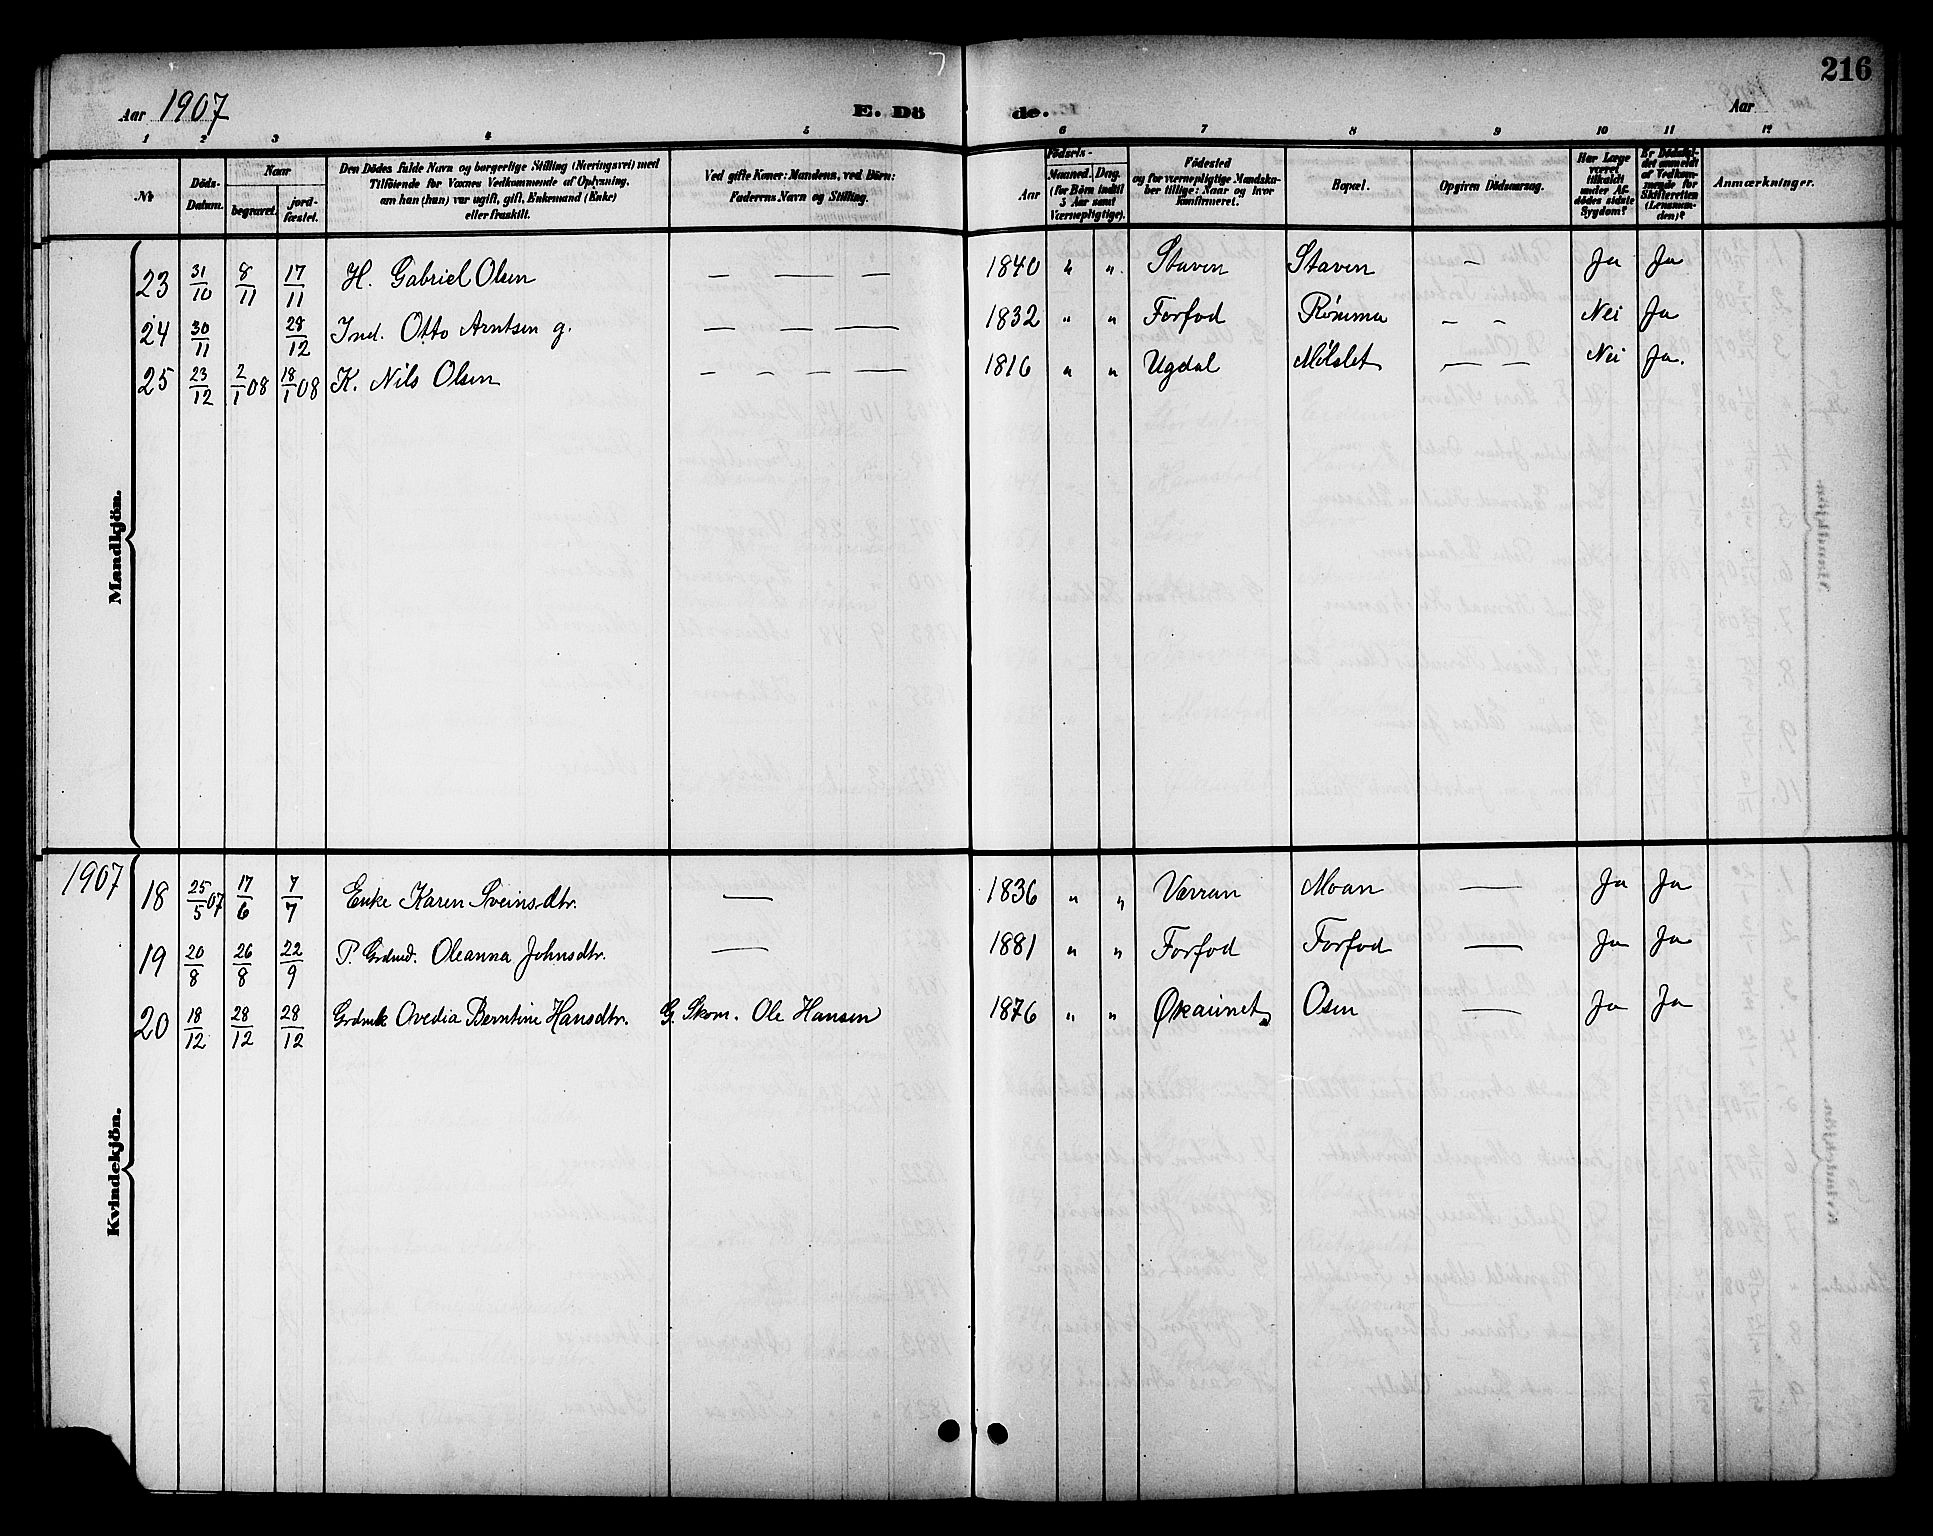 216
Aar 1907 E. Döde. Aar
1 2 3 4 5 6 7 8 9 10 11 12
Nr.
Döds-Datum.
Naar
begravet. jordfæstet.
Den Dödes fulde Navn og borgerlige Stilling (Næringsvei) med
Tilföiende for Voxnes Vedkommende af Oplysning,
om han (hun) var ugift, gift, Enkemand (Enke)
eller fraskilt.
Ved gifte Koner: Mandens, ved Börn:
Faderens Navn og Stilling.
Födsels-
Aar
Maaned. Dag.
(for Börn indtil
5 Aar samt
Værnepligtige).
Födested
og for værnepligtige Mandskaber tillige: Naar og hvor
konfirmeret.
Bopæl.
Opgiven Dödsaarsag.
Har Læge
været
tilkaldt
under Afdödes sidste
Sygdom?
Er Dödsfaldet anmeldt
af Vedkommende for
Skifteretten
(Lensmanden)?
Anmærkninger.
Mandkjön.
23 31/10 8/11 17/11 H. Gabriel Olsen — — — 1840 " " Staven Staven — Ja Ja
24 30/11 28/12 Ind. Otto Arntsen g. — — — 1832 " " Forfod Rømma — — Nei Ja
25 23/12 2/1 08 18/1 08 K. Nils Olsen — — — — 1816 " " Ugdal Mølslet — — Nei Ja.
Kvindekjön.
1907 18 25/5 07 17/6 7/7 Enke Karen Sveinsdtr. — 1836 " " Værran Moan — Ja Ja
19 20/8 26/8 22/9 P. Grdmd. Oleanna Johnsdtr. — 1881 " " Forfod Forfod — Ja Ja
20 18/12 28/12 28/12 Grdmk Ovedia Berntine Hansdtr. G. Skom. Ole Hansen 1876 " " Økaunet Osen — Ja Ja